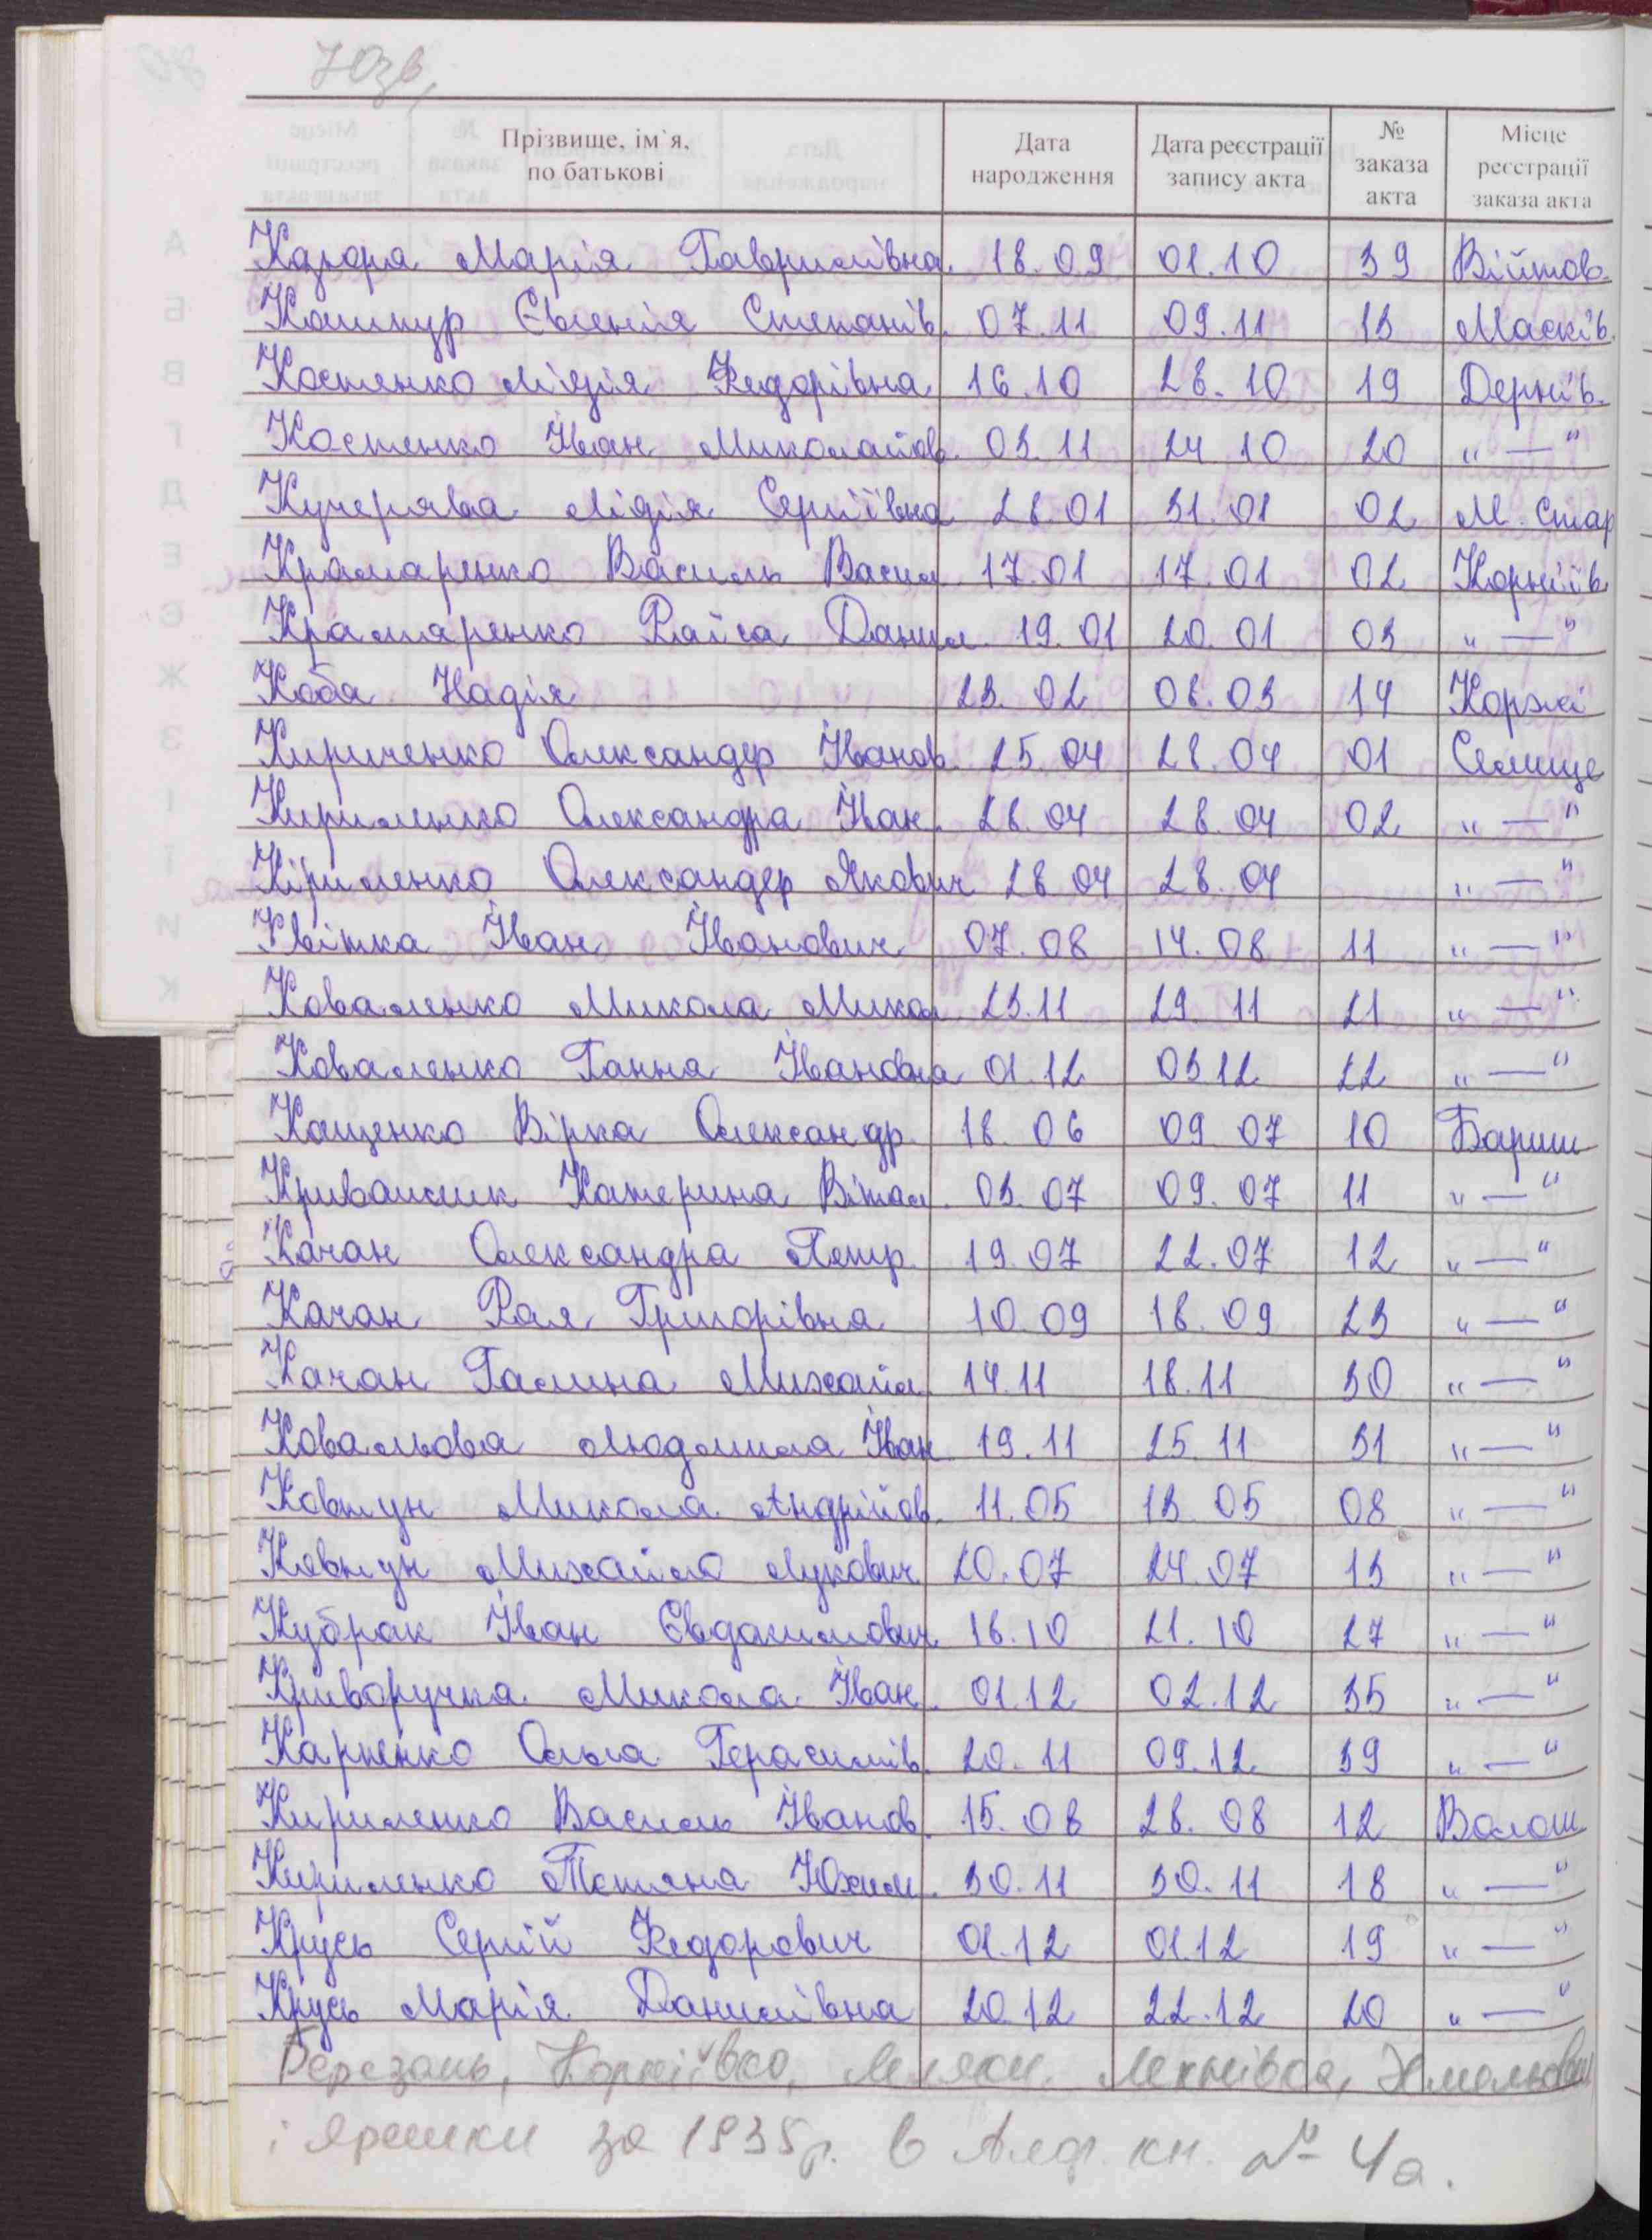 70зв,
Прізвище, ім`я, по батькові | Дата народження | Дата реєстрації запису акта | № заказа акта | Місце реєстрації заказа акта
Кадюра Марія Гаврилівна 18.09 01.10 39 Війтов.
Кошпур Євгенія Степанів. 07.11 09.11 13 Масків.
Костенко Лідія Федорівна 16.10 28.10 19 Дернів.
Костенко Іван Миколайов. 03.11 24 10 20 „ — "
Кучерява Лідія Сергіївна 28.01 31.01 02 М. Стар
Крамаренко Василь Васил 17.01 17.01 02 Корніїв
Крамаренко Раїса Данил. 19.01 20.01 03 „ — "
Коба Надія 23.02 08.03 14 Коржі
Кириченко Олександер Іванов. 25.04 28.04 01 Селище
Кириленко Олександра Іван. 28.04 28.04 02 „ — "
Кіриленко Олександер Якович 28.04 28.04 „ — "
Квітка Іван Іванович 07.08 14.08 11 „ — "
Коваленко Микола Микол 23.11 29.11 21 „ — "
Коваленко Ганна Івановна 01.12 03.12 22 „ — "
Кащенко Вірка Олександр. 18.06 09.07 10 Бариш
Кривошик Катерина Вітал. 03.07 09.07 11 „ — "
Качан Олександра Петр. 19.07 22.07 12 „ — "
Качан Рая Григорівна 10.09 18.09 23 „ — "
Качан Галина Михайл. 14.11 18.11 30 „ — "
Ковальова Людмила Іван 19.11 25.11 31 „ — "
Ковтун Микола Андрійов. 11.05 13.05 08 „ — "
Ковтун Михайло Лукович 20.07 24.07 13 „ — "
Кубрак Іван Євдокимович. 16.10 21.10 27 „ — "
Криворучка Микола Іван. 01.12 02.12 35 „ — "
Карпенко Ольга Герасимів. 20.11 09.12 39 „ — "
Кириленко Василь Іванов. 15.08 28.08 12 Волош
Кириленко Тетяна Юхим. 30.11 30.11 18 „ — "
Крусь Сергій Федорович 01.12 01.12 19 „ — "
Крусь Марія Данилівна 20.12 22.12 20 „ — "
Березань, Корніївка, Лехнівка,
і Ярешки за 1935р. в Алф. кн. № 4а.